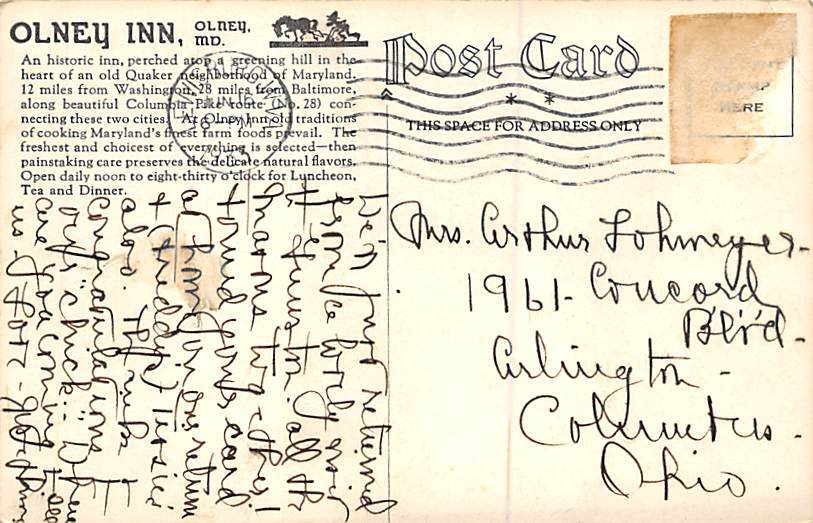 OLNEY INN, OLNEY, MD.
An historic inn, perched atop a greening hill in the
heart of an old Quaker neighborhood of Maryland.
12 miles from Washington, 28 miles from Baltimore,
along beautiful Columbia Pike (route No. 28) con-
necting these two cities. At Olney Inn old traditions
of cooking Maryland's finest farm foods prevail. The
freshest and choicest of everything is selected—then
painstaking care preserves the delicate natural flavors.
Open daily noon to eight-thirty o'clock for Luncheon,
Tea and Dinner.
Post Card
THIS SPACE FOR ADDRESS ONLY
HERE
JUN
We'n just returned
from a
all the
two - this!
found your card
on our return
&
also.
Congratulations
"chick". When
are you coming to see
us.
Mrs. Arthur Lohmeyer-
1961- Concord
Blvd-
Arlington -
Columbus.
Ohio.